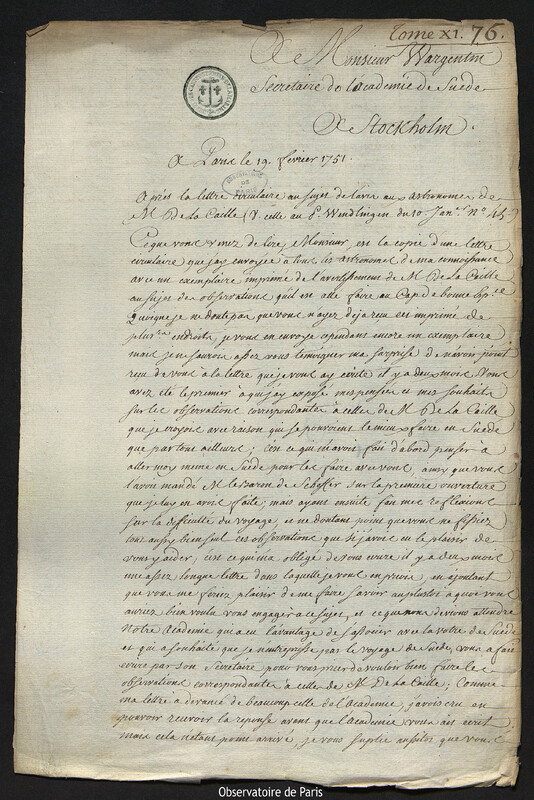 Tome XI. 76.
A Monsieur Wargentin
Secretaire de l'academie de Suede
A Stockholm.
A Paris le 19. fevrier 1751.
Après la lettre circulaire au sujet de l'avis aux astronomes de
M. De la Caille (V. celle au P. Wendlingen du 10 Janer. No.
Ce que vous venez de lire, Monsieur, est la copie d'une lettre
circulaire que j'ay envoyée à tous les astronomes de ma connoissance
avec un exemplaire imprimé de l'avertissement de M. De la Caille
au sujet des observations qu'il est allé faire au Cap de bonne Espce.
Quoique je ne doute pas que vous n'ayez deja reçu cet imprimé de
plusrs. endroits, je vous en envoye cependant encore un exemplaire
mais je ne saurois assez vous temoigner ma surprise de n'avoir point
reçu de vous à la lettre que je vous ay écrite il y a deux mois. Vous
avez été le premier à qui j'ay exposé mes pensées et mes souhaits
sur les observations correspondantes à celles de M. De la Caille
que je croyois avec raison qui se pouvoient le mieux faire en Suede
que partout ailleurs; c'est ce qui m'avoit fait d'abord penser à
aller moy meme en Suede pour les faire avec vous, ainsy que vous
l'avoit mandé M. le Baron de Scheffer sur la premiere ouverture
que je luy en avois faite; mais ayant ensuite fait mes reflexions
sur la difficulté du voyage, et ne doutant point que vous ne fissiez
tout aussy bien seul ces observations que si j'avois eu le plaisir de
vous y aider, c'est ce qui m'a obligé de vous ecrire il y a deux mois
une assez longue lettre dans laquelle je vous en priois, en ajoutant
que vous me feriez plaisir de me faire savoir aussitost à quoi vous
auriez bien voulu vous engager à ce sujet, et ce que nous devions attendre
Notre Academie qui a eu l'avantage de s'associer avec la votre de Suede
et qui a souhaité que je n'entreprisse pas le voyage de Suede, vous a fait
ecrire par son Secretaire pour vous prier de vouloir bien faire les
observations correspondantes à celles de M. De la Caille; Comme
ma lettre a devancé de beaucoup celle de l'Academie, j'avois cru en
pouvoir recevoir la reponse avant que l'Academie vous ait ecrit
mais cela n'étant point arrivé, je vous suplie aussitost que vous
Observatoire de Paris